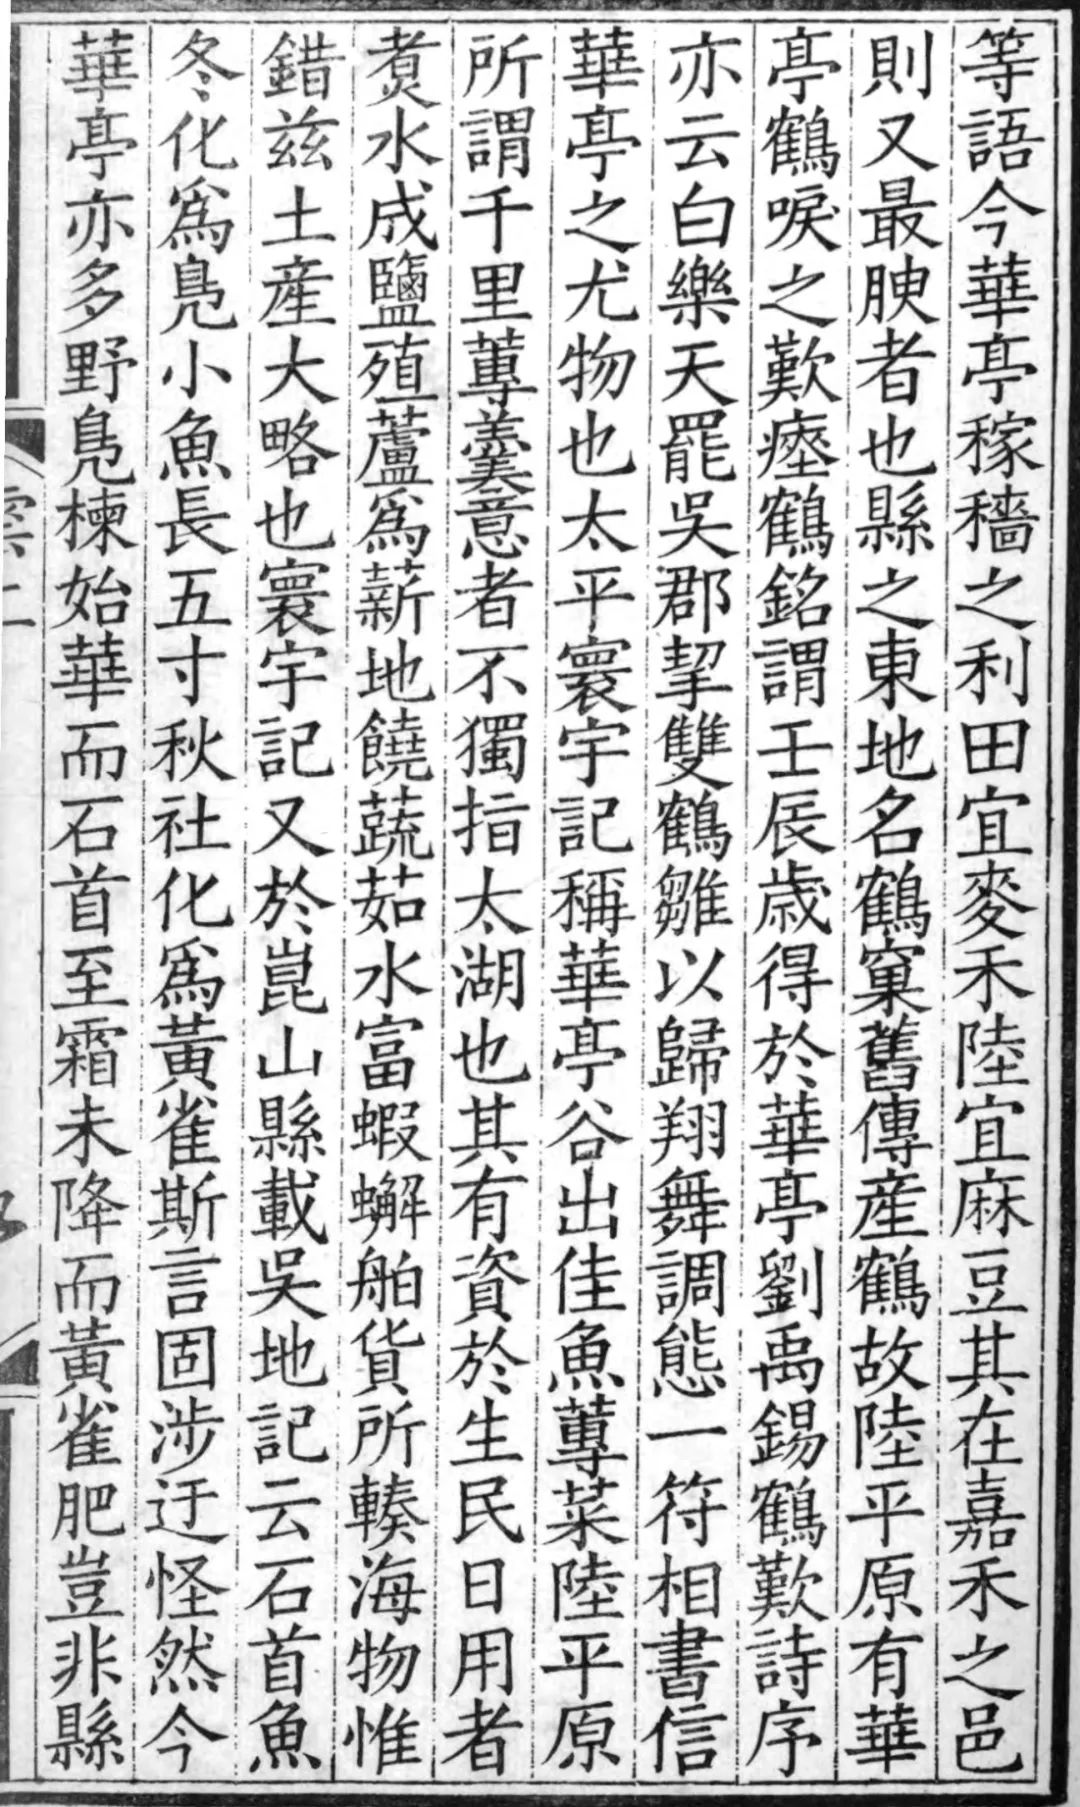 等語今華亭稼穡之利田宜麥禾陸宜麻豆其在嘉禾之邑
則又最腴者也縣之東地名鶴窠舊傳産鶴故陸平原有華
亭鶴唳之歎瘞鶴銘謂壬辰歳得於華亭劉禹錫鶴歎詩序
亦云白樂天罷吳郡挈雙鶴雛以歸翔舞調態一符相書信
華亭之尤物也太平寰宇記稱華亭谷出佳魚蓴菜陸平原
所謂千里蓴羹意者不獨指太湖也其有資於生民日用者
煑水成鹽殖蘆爲薪地饒蔬茹水富蝦蠏舶貨所輳海物惟
錯兹土産大略也寰宇記又於崑山縣載吳地記云石首魚
冬化爲鳧小魚長五寸秋社化爲黃雀斯言固涉迂怪然今
華亭亦多野鳧楝始華而石首至霜未降而黃雀肥豈非縣